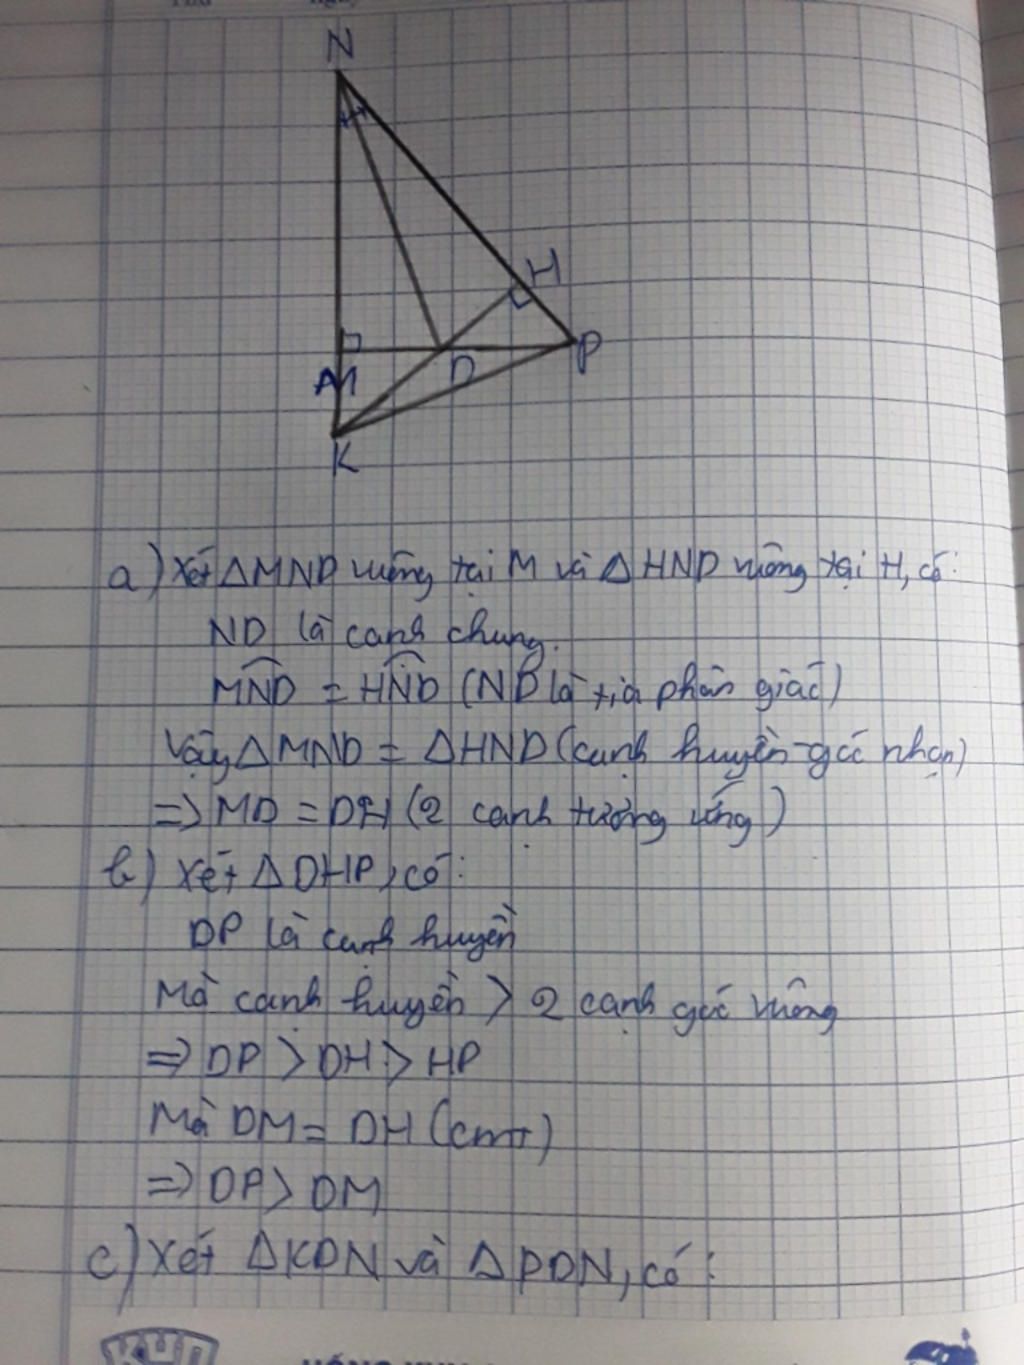 N
H
P
M
D
K
a) Xét ΔMND vuông tại M và ΔHND vuông tại H, có:
ND là cạnh chung.
MND = HND (ND là tia phân giác)
Vậy ΔMND = ΔHND (cạnh huyền-góc nhọn)
=> MD = DH (2 cạnh tương ứng)
b) Xét ΔDHP, có:
DP là cạnh huyền
Mà cạnh huyền > 2 cạnh góc vuông
=> DP > DH > HP
Mà DM = DH (cmt)
=> DP > DM
c) Xét ΔKDN và ΔPDN, có: